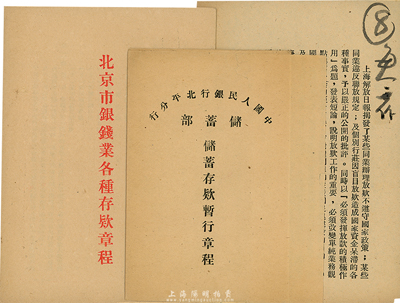 上海解放日報揭發了某些同業辦理放欵不遵守國家政策；某些
同業違反聯放規定；及個別行莊因盲目放欵造成國家資金呆滯的各
種事實，予以嚴正的公開的批評。同時以「必須發揮放欵的積極作
用」為題，發表短論，說明放欵工作的重要，必須改變單純業務觀
⑧
中國人民銀行北平分行
儲蓄部
儲蓄存欵暫行章程
北京市銀錢業各種存欵章程